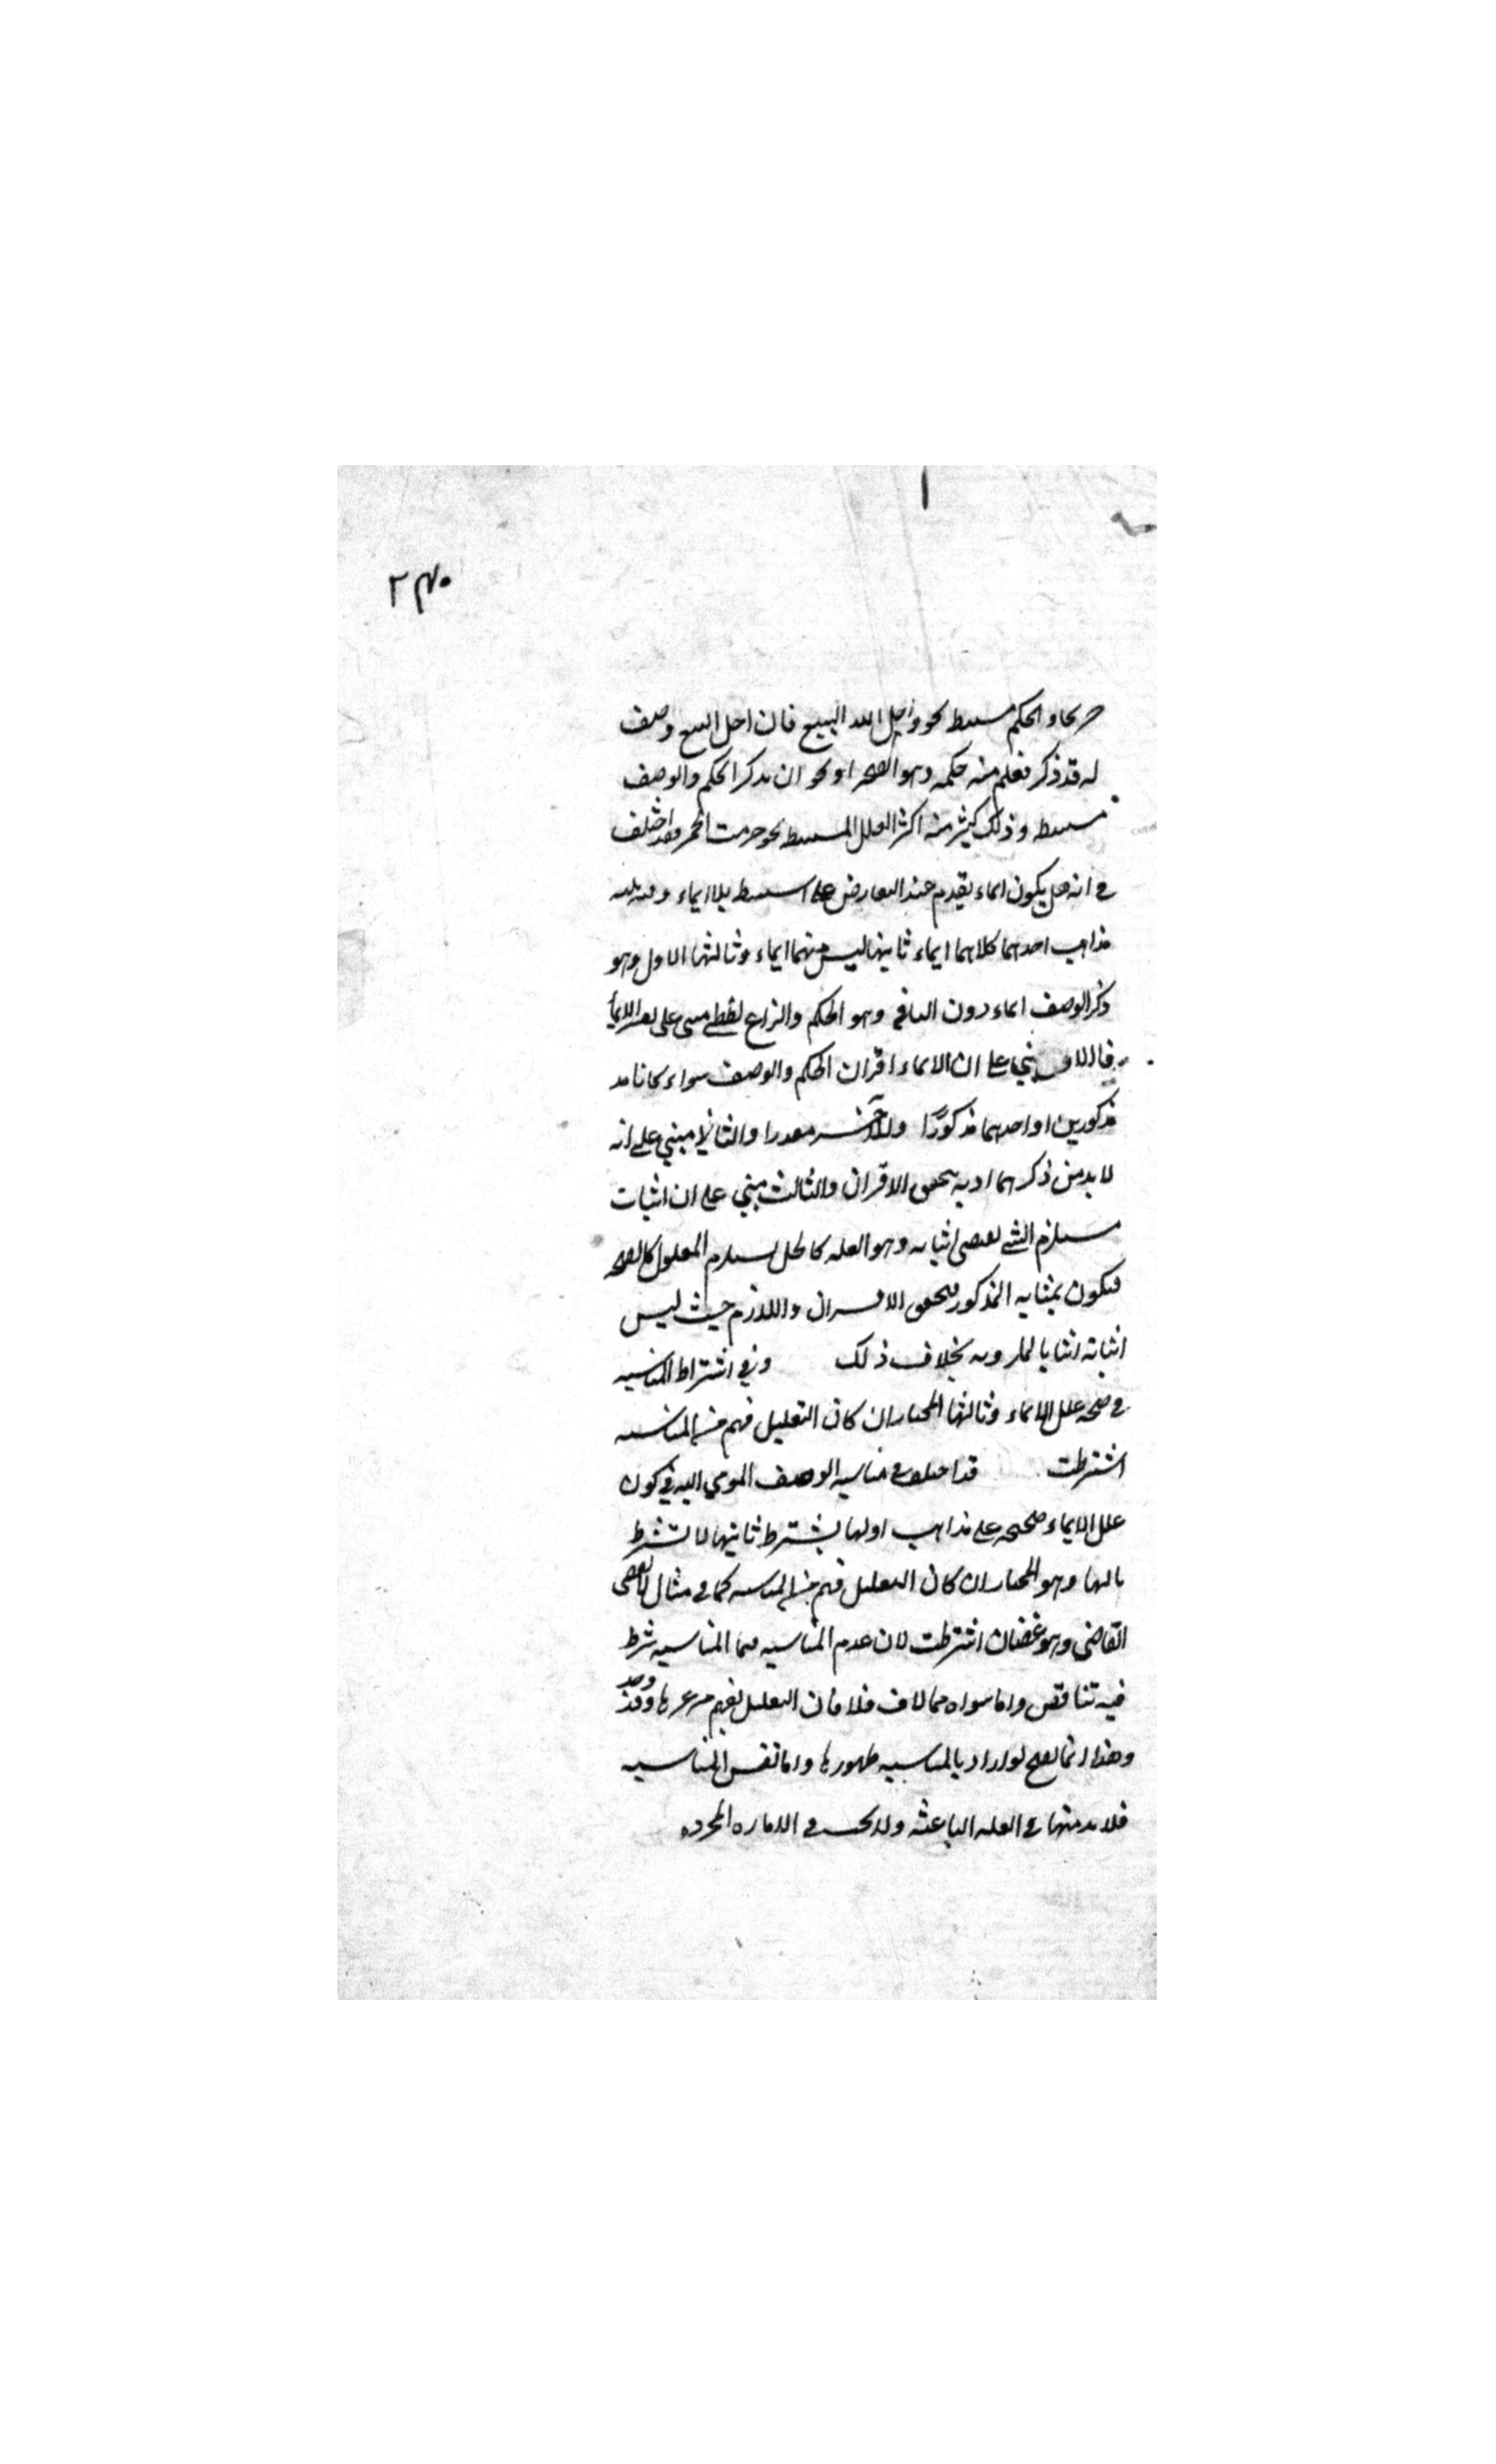 ٢٤٠
صريحا والحكم مستنبط نحو واحل الله البيع فان احل البيع وصف
له قد ذكر فعلم منه حكمه وهو الصحة او نحو ان يذكر الحكم والوصف
مستنبط وذلك كثير منه اكثر العلل المستنبطه نحو حرمت الخمر وقد اختلف
في انه هل يكون ايماء يقدم عند التعارض على استنبط بلا ايماء وفيه ثلثه
مذاهب احدهما كلاهما ايماء ثانيها ليس منهما ايماء وثالثها الاول وهو
ذكر الوصف ايماء دون الباقي وهو الحكم والنزاع لفظي مبني على تفسير الايماء
فالاول مبني على ان الايماء اقتران الحكم والوصف سواء كانا مذ
مذكورين او احدهما مذكورًا والآخر مقدرا والثاني مبني على انه
لا بد من ذكرهما اذ به يتحقق الاقتران والثالث مبني على ان اثبات
مستلزم الشي يقتضي اثباته وهو العله كالحل يستلزم المعلول كالصحه
فيكون بمثابه المذكور فيتحقق الاقتران واللازم حيث ليس
اثباته اثباتا لملزومه بخلاف ذلك وفي اشتراط المناسبه
في صحه علل الايماء وثالثها المختار ان كان التعليل فهم من المناسبه
اشترطت قد اختلف في مناسبه الوصف المومي اليه في كون
علل الايماء صحيحه على مذاهب اولها يشترط ثانيها لا تشترط
ثالثها وهو المختار ان كان التعليل فهم من المناسبه كما في مثال لا يقضي
القاضي وهو غضبان اشترطت لان عدم المناسبه فيما المناسبه شرط
فيه تناقض واما سواه من الاقسام فلا فان التعليل يفهم من غيرها وقد وجد
وهذا انما يصح لو اراد بالمناسبه ظهورها واما نفس المناسبه
فلا بد منها في العله الباعثه ولا يجب في الاماره المجرده